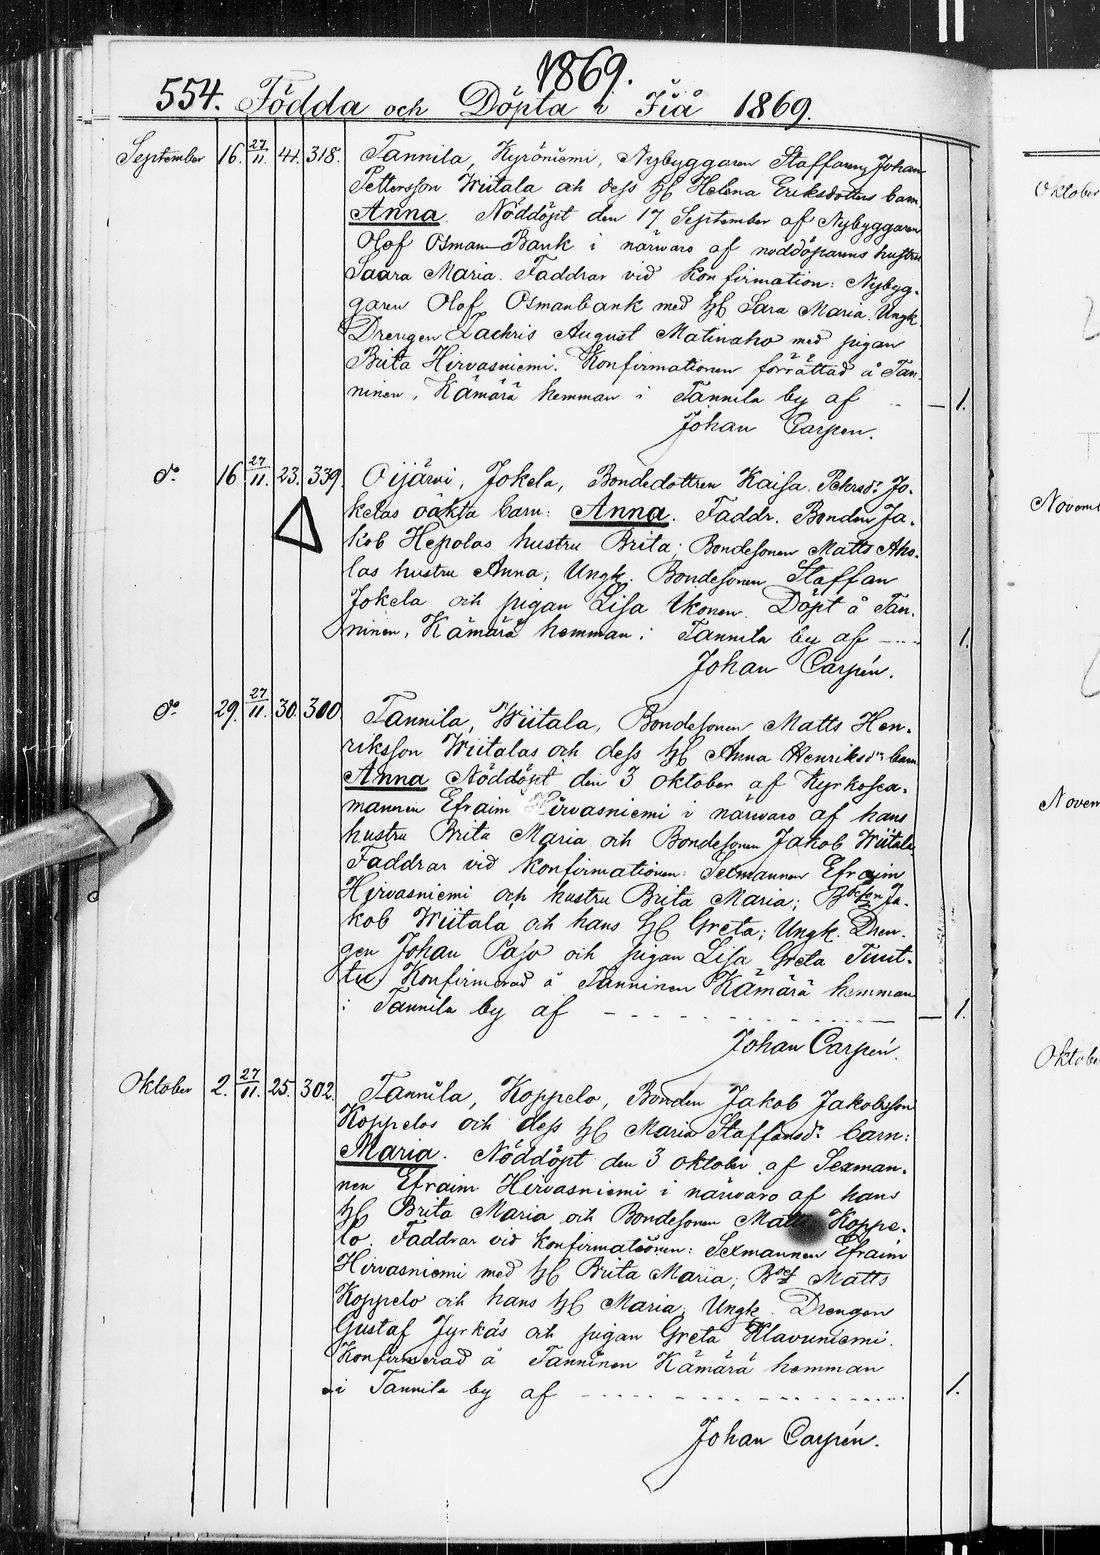 1869.
554. Födda och Döpta i Jiå 1869.
September 16. 27/11. 44. 318. Tannila, Kyröniemi, Nybyggaren Staffan Johan
Pettersson Wiitala och dess h. Helena Eriksdotters barn
Anna. Nöddöpt den 17 September af Nybyggaren
Olof Osman-Bank i närwaro af noddöparens hustru
Saara Maria. Faddrar vid konfirmation: Nybyg-
garen Olof Osmanbank med h. Sara Maria. Ungk.
Drengen Zachris August Matinaho med pigan
Brita Hirvasniemi. Konfirmationen förrättad å Tan-
ninen, Kämärä hemman i Tannila by af — 1.
Johan Carpén.
do 16 27/11. 23. 339. Oijärvi, Jokela, Bondedottren Kaisa Petersdr Jo-
kelas oäkta barn: Anna. Faddr. Bonden Ja-
kob Hepolas hustru Brita; Bondesonen Matts Aho-
las hustru Anna; Ungk. Bondesonen Staffan
Jokela och pigan Lisa Ikonen. Döpt å Tan-
ninen, Kämärä hemman i Tannila by af — 1.
Johan Carpén.
do 29. 27/11. 30. 300. Tannila, Wiitala, Bondesonen Matts Hen-
riksson Wiitalas och dess h. Anna Henriksdrs barn
Anna Nöddöpt den 3 Oktober af Kyrkosex-
mannen Efraim Hirvasniemi i närwaro af hans
hustru Brita Maria och Bondesonen Jakob Wiitala
Faddrar vid konfirmationen: Sexmannen Efraim
Hirvasniemi och hustru Brita Maria; Ja-
kob Wiitala och hans h. Greta; Ungk. Dren-
gen Johan Paso och pigan Lisa Greta Tuut-
tu. Konfirmerad å Tanninen Kämärä hemman
i Tannila by af — 1.
Johan Carpén.
Oktober 2. 27/11. 25. 302. Tannila, Koppelo, Bonden Jakob Jakobsson
Koppelos och dess h. Maria Staffansdr barn:
Maria. Nöddöpt den 3 Oktober af Sexman-
nen Efraim Hirvasniemi i närwaro af hans
h. Brita Maria och Bondesonen Matts Koppe-
lo. Faddrar vid konfirmationen: Sexmannen Efraim
Hirvasniemi med h. Brita Maria; Matts
Koppelo och hans h. Maria; Ungk. Drengen
Gustaf Jyrkäs och pigan Greta Klavuniemi.
Konfirmerad å Tanninen Kämärä hemman
i Tannila by af — 1.
Johan Carpén.
Oktober
Novem
Novem
Oktobe